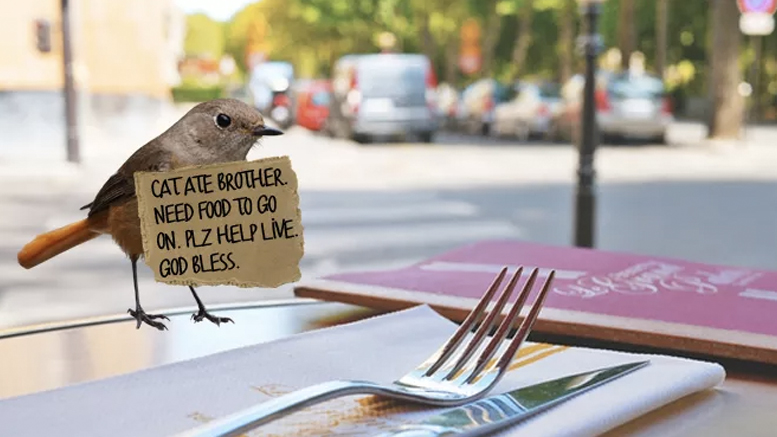 CAT ATE BROTHER.
NEED FOOD TO GO
ON. PLZ HELP LIVE.
GOD BLESS.